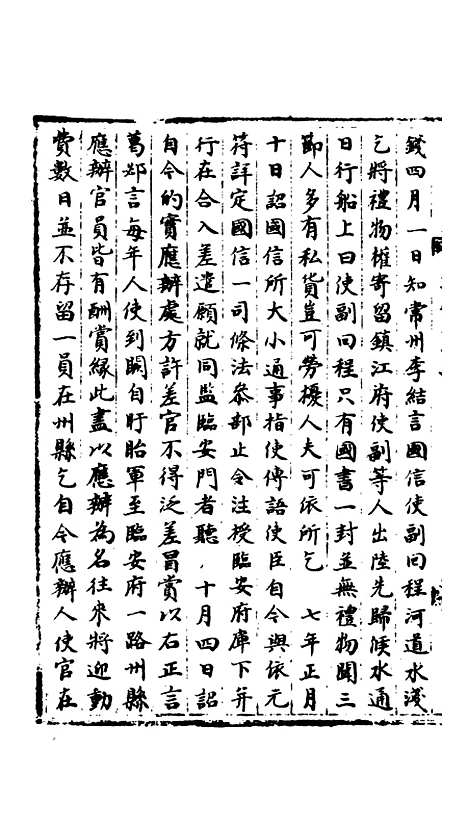 錢四月一日知常州李結言國信使副回程河道水淺
乞將禮物權寄留鎮江府使副等人出陸先歸候水通
日行船上曰使副回程只有國書一封並無禮物聞三
節人多有私貨豈可勞擾人夫可依所乞　七年正月
十日詔國信所大小通事指使傳語使臣自今與依元
符詳定國信一司條法參部止令注授臨安府庫下并
行在合入差遣願就同監臨安門者聽　十月四日詔
自今的實應辦處方許差官不得泛差冒賞以右正言
葛邲言每年人使到闕自盱眙軍至臨安府一路州縣
應辦官員皆有酬賞緣此盡以應辦為名往來將迎動
費數日並不存留一員在州縣乞自今應辦人使官在